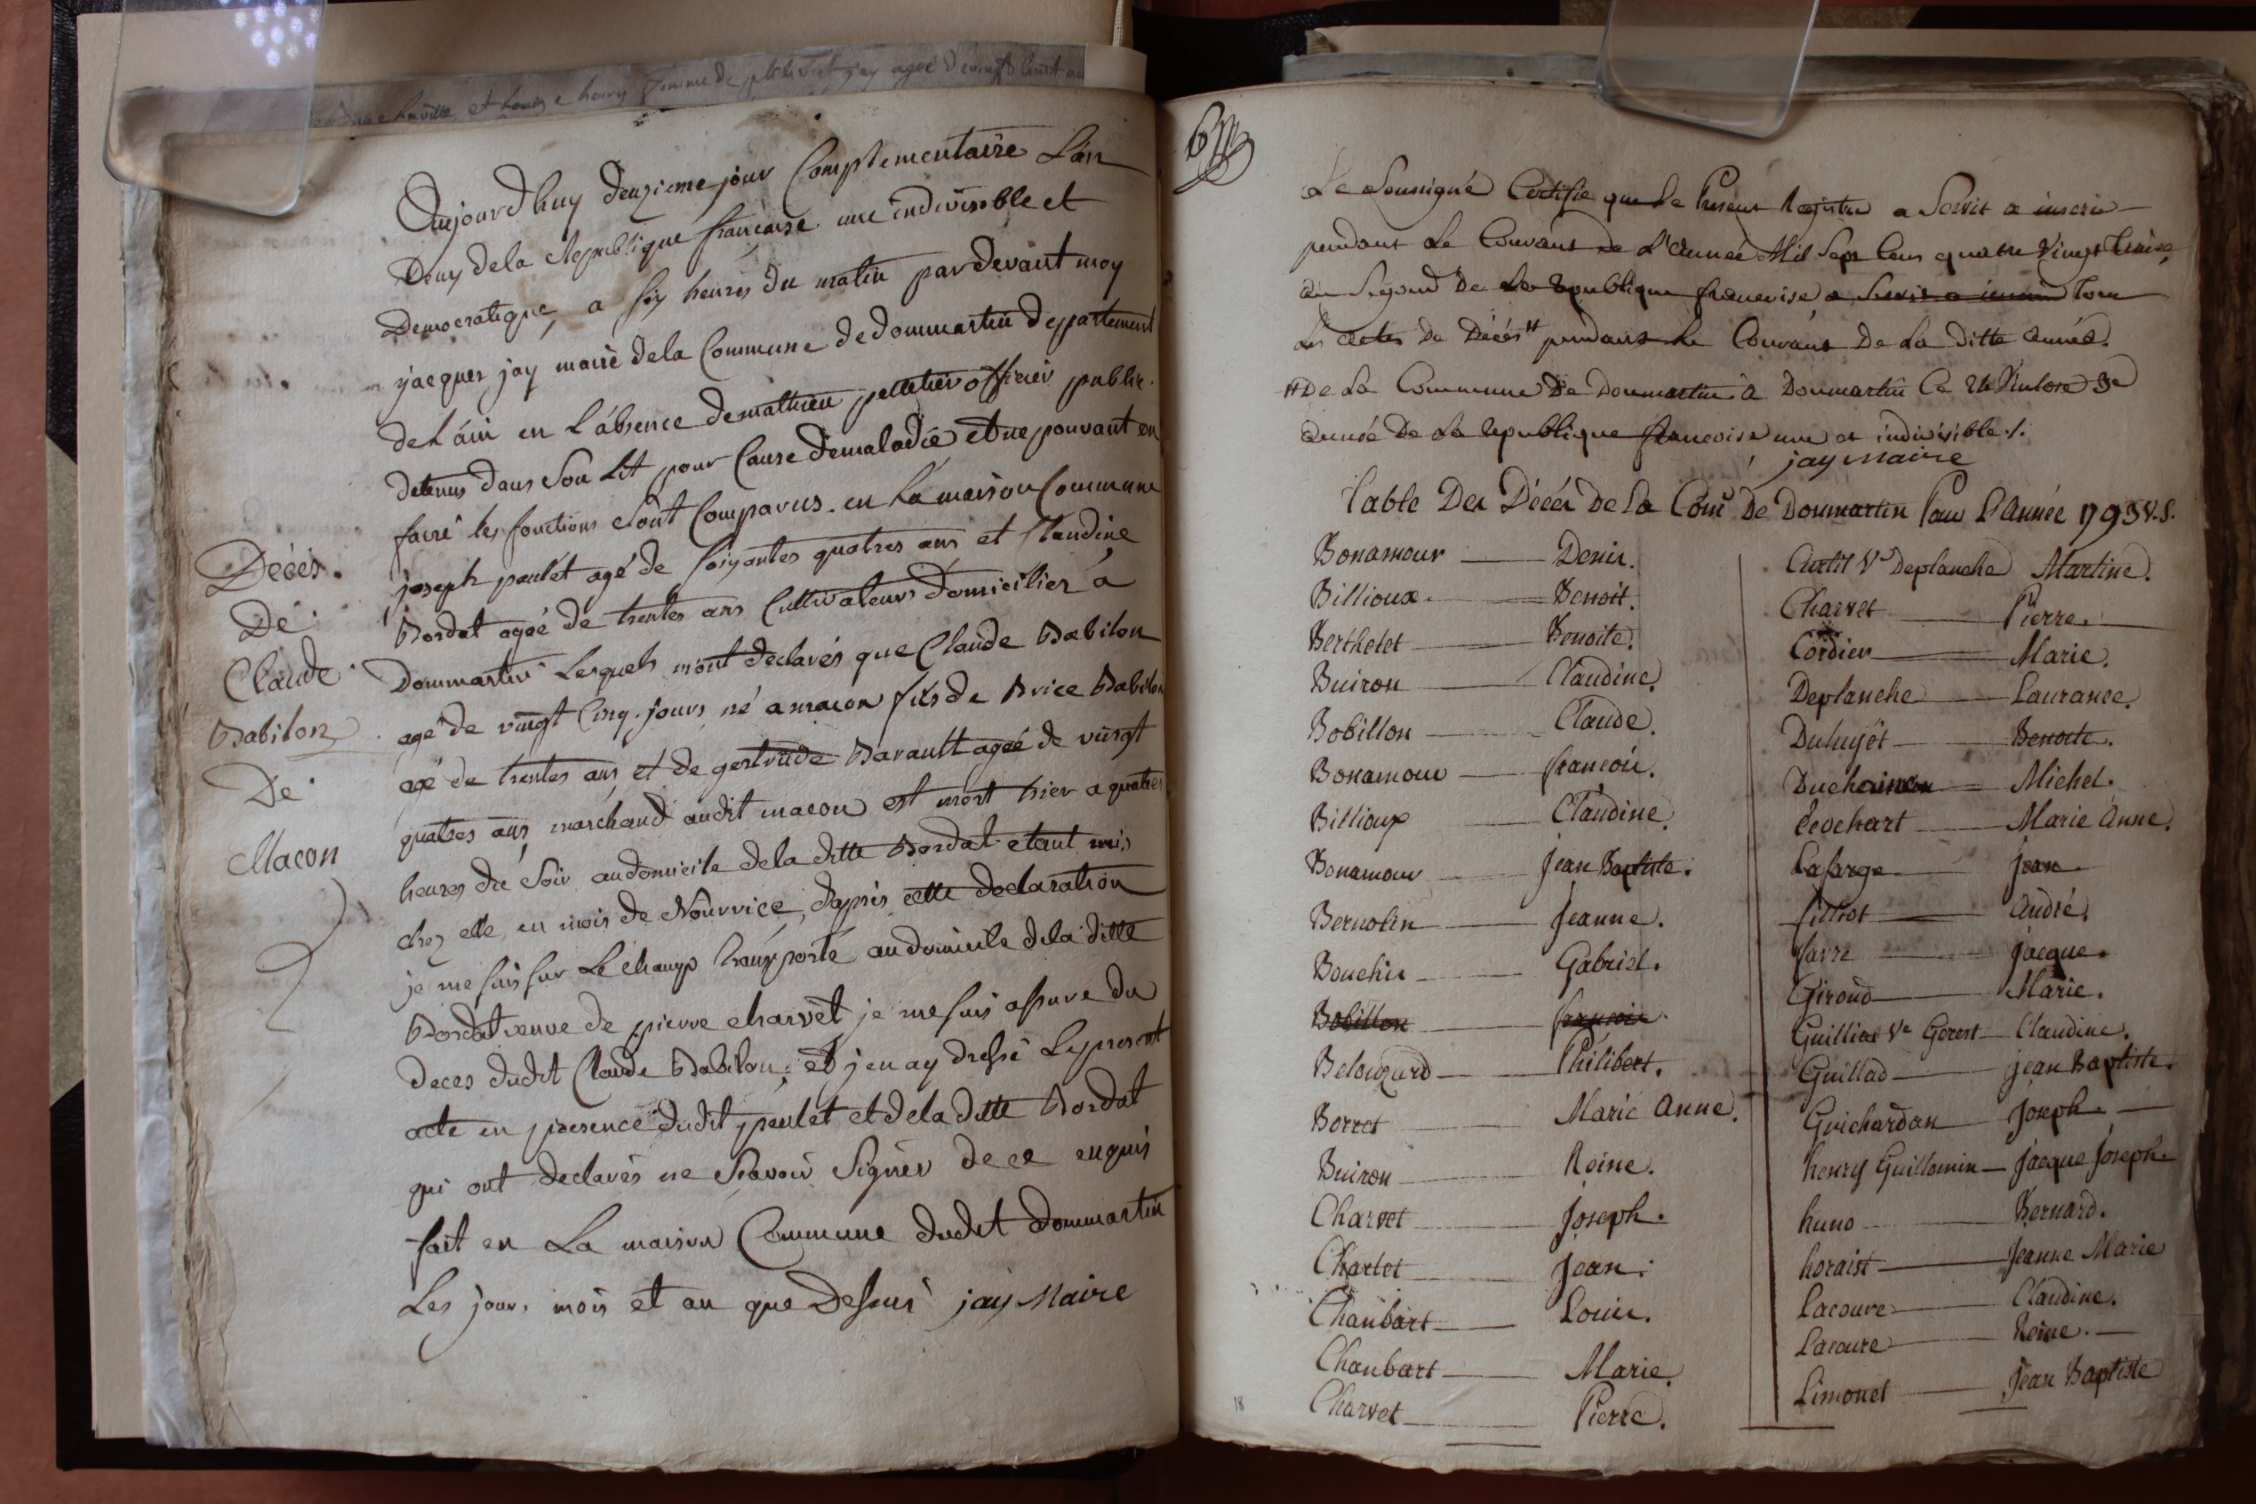 Aujourdhuy deuzieme jour Complementaire L'an
Deux dela Republique francaise une indivisible et
Democratique, a six heures du matin pardevant moy
jacques jay maire dela Commune dedommartin departement
deL'ain en L'absence demathieu pelletier officier public
detenus dans Son Lit pour Cause demaladie et ne pouvant en
faire les fonctions Sont Comparus en La maison Commune
joseph paulet agé de Soixantes quatres ans et Claudine
Bordat ageé de trentes ans Cultivateurs Domiciliez a
Dommartin Lesquels m'ont declarés que Claude Babilon
agé de vingt Cinq jours né a macon fils de Brice Babilon
agé de trentes ans et de gertrude Barault ageé de vingt
quatres ans marchand audit macon est mort hier a quatres
heures du Soir audomicile dela ditte Bordat etant mis
chez elle en mois de Nourrice, dapres cette declaration
je me suis sur Le champ transporté audomicile dela ditte
Bordat veuve de pierre charvet je me suis assure du
deces dudit Claude Babilon, et j'en ay dressé Le present
acte en presence dudit paulet et dela ditte Bordat
qui ont declarés ne Scavoir Signer de ce enquis
fait en La maison Commune dudit Dommartin
Les jour, mois et an que Dessus jay Maire
Décés.
De
Claude
Babilon
De
Macon
Le Soussigné Certifie que Le Present Registre a Servit a inscrire
pendant Le Courant de L'année Mil Sept Cens quatre Vingt treize,
au Segond De La Republique francoise a Servit a inscrire tous
Les actes De Décés # pendant Le Courant De La Ditte année.
# De La Commune De Donmartin a Donmartin Ce Nivôse 3e
année De La Republique francoise une et indivisible ./.
jay Maire
Table Des Décés de La Com. De Donmartin Pour L'Année 1793 V.S.
Bonamour Denis.
Billioux Benoit.
Berthelet Benoite.
Buiron Claudine.
Bobillon Claude.
Bonamour francois.
Billioux Claudine.
Bonamour Jean Baptiste.
Bernolin Jeanne.
Bouchis Gabriel.
Bobillon francois
Philibert.
Borret Marie Anne.
Buiron Reine.
Charvet Joseph.
Charlet Jean.
Chanbart Louis.
Chanbart Marie.
Charvet Pierre.
18
Ve Deplanche Martine.
Charvet Pierre.
Cordier Marie.
Deplanche Laurance.
Duhuyët Benoite.
Michel.
Marie Anne.
Lafarge Jean
André.
favre Jacque.
Giroud Marie.
Ve Gerest Claudine.
Guillad Jean Baptiste.
Guichardan Joseph.
henry Guillomin Jacque Joseph
huno Bernard.
horaist Jeanne Marie
Lacoure Claudine.
Lacoure Reine.
Limonet Jean Baptiste